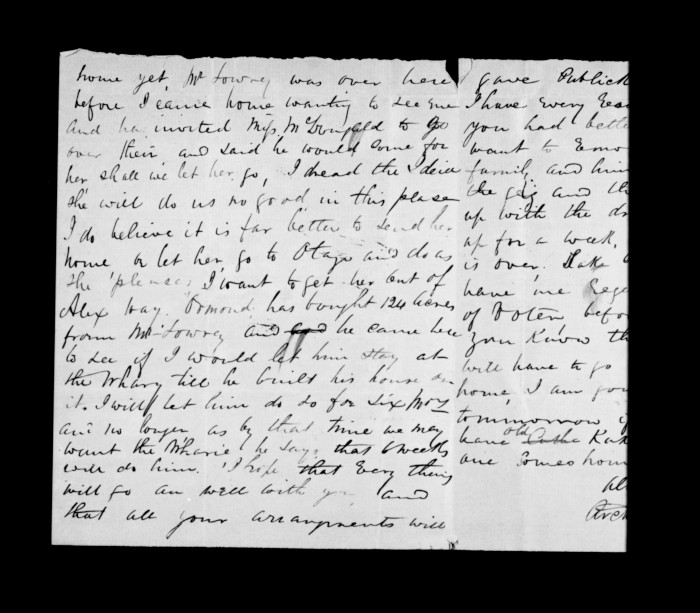 home yet, Mr Lowrey was over here
before I came home wanting to see me
and he invited Miss McDougald to go
over their and said he would come for
her shall we let her go, I dread the Idea
she will do us no good in this place
I do believe it is far better to send her
home or let her go to Otago and do as
she pleases I want to get her out of
Alex way. Ormond has bought 124 acres
from Mr Lowrey and he came here
to see if I would let him stay at
the Whary till he built his house on
it. I will let him do so for Six Mos
and no longer as by that time we may
want the Wharie he says that 6 weeks
will do him. I hope that Every thing
will go on well with you and
that all your arrangments will
gave Publick
I have Every Reas
you had bette
want to Remo
family and him
the gig and th
up with the d
up for a week,
is over. Take
have me Rege
of Voten befor
you Know th
will have to go
home I am go
tommorrow
have old Kat
one comes hom
al
Arch